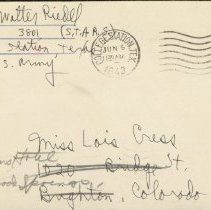 Walter Riedel
3801 (S.T.A.R.)
Station, Texas
S. Army
COLLEGE STATION, TEX.
JUN 6
1943
Miss Lois Cress
Bridge St.
Springs
Brighton, Colorado